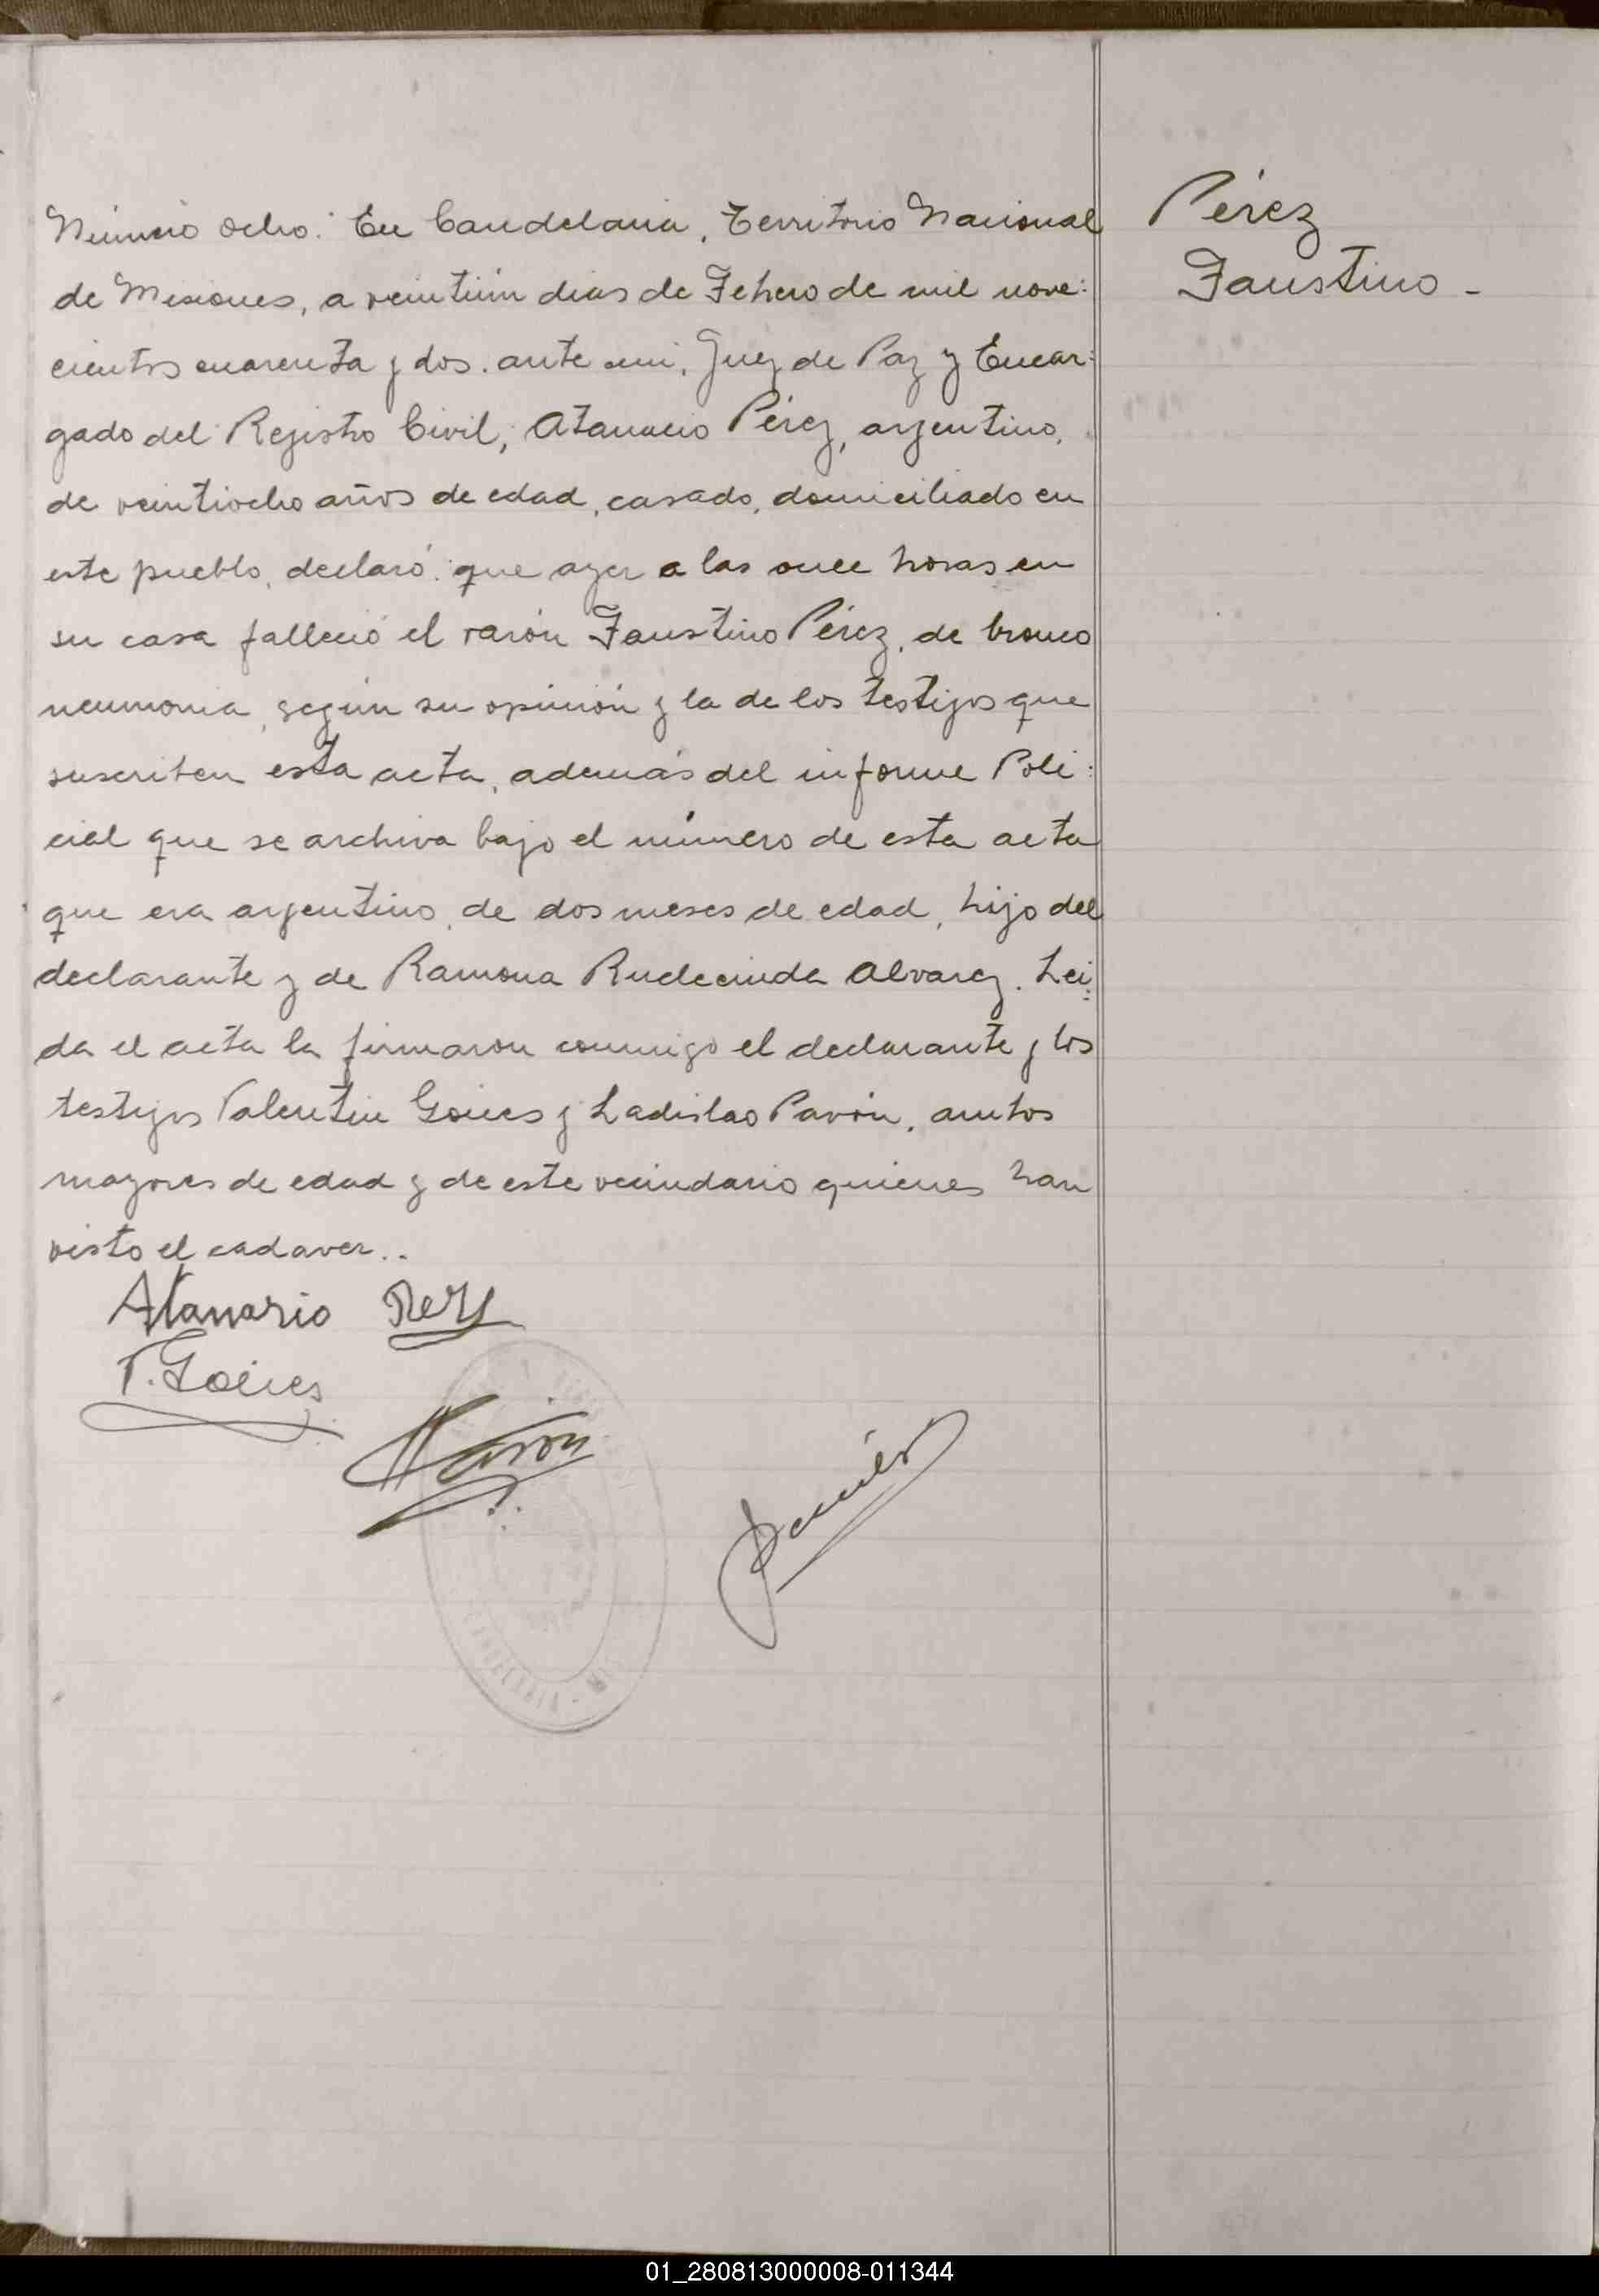 Número ocho: En Candelaria, Territorio Nacional
de Misiones, a veintiún dias de Febrero de mil nove:
cientos cuarenta y dos. ante mi, Juez de Paz y Encar:
gado del Registro Civil, Atanacio Pérez, argentino,
de veintiocho años de edad, casado, domiciliado en
este pueblo, declaró: que ayer a las once horas en
su casa falleció el varón Faustino Pérez, de bronco
neumonia, según su opinión y la de los testigos que
suscriben esta acta, además del informe Poli:
cial que se archiva bajo el número de esta acta
que era argentino, de dos meses de edad, hijo del
declarante y de Ramona Rudecinda Alvarez. Lei:
da el acta la firmaron conmigo el declarante y los
testigos Valentin Goires y Ladislao Pavón, ambos
mayores de edad y de este vecindario quienes han
visto el cadaver..
Pérez
Faustino -
Atanasio
V. Goires
Pavón
01_280813000008-011344